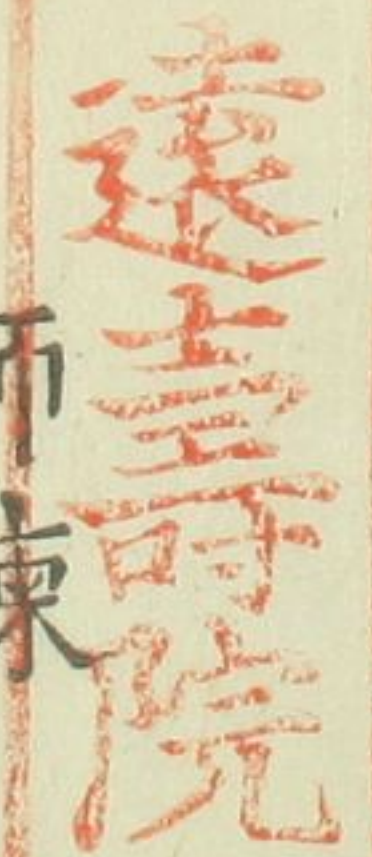 遠壽院
師東